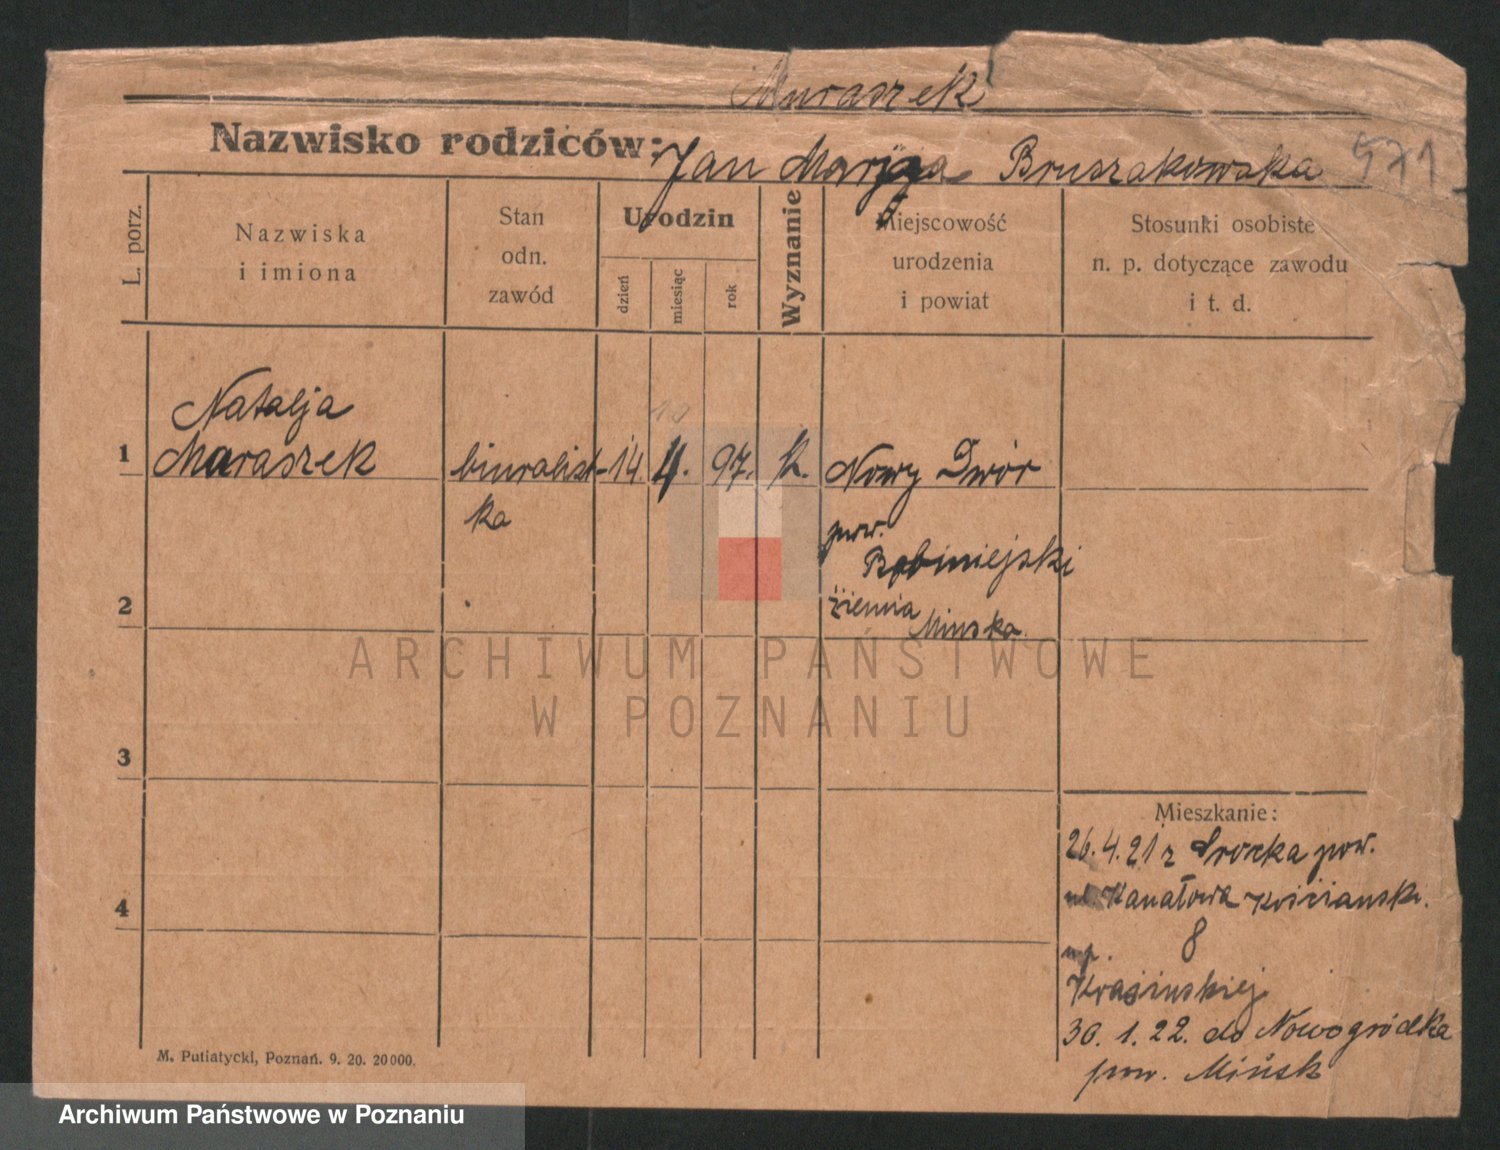 Muraszek
Nazwisko rodziców: Jan Marja Bruszakowska 571
L. porz.
Nazwiska
i imiona
Stan
odn.
zawód
Urodzin
dzień
miesiąc
rok
Wyznanie
Miejscowość
urodzenia
i powiat
Stosunki osobiste
n. p. dotyczące zawodu
i t. d.
Natalja
1 Muraszek biuralist- 14. 4. 97. k. Nowy Dwór
ka
pow.
2
ziemia Mińska
ARCHIWUM PAŃSTWOWE
W POZNANIU
3
4
Mieszkanie:
26. 4. 21 z Srocka pow.
ul. Kanałowa Kościansk.
8
Krasińskiej
30. 1. 22. do Nowogródka
pow. Mińsk
M. Putiatycki, Poznań. 9. 20. 20000.
Archiwum Państwowe w Poznaniu